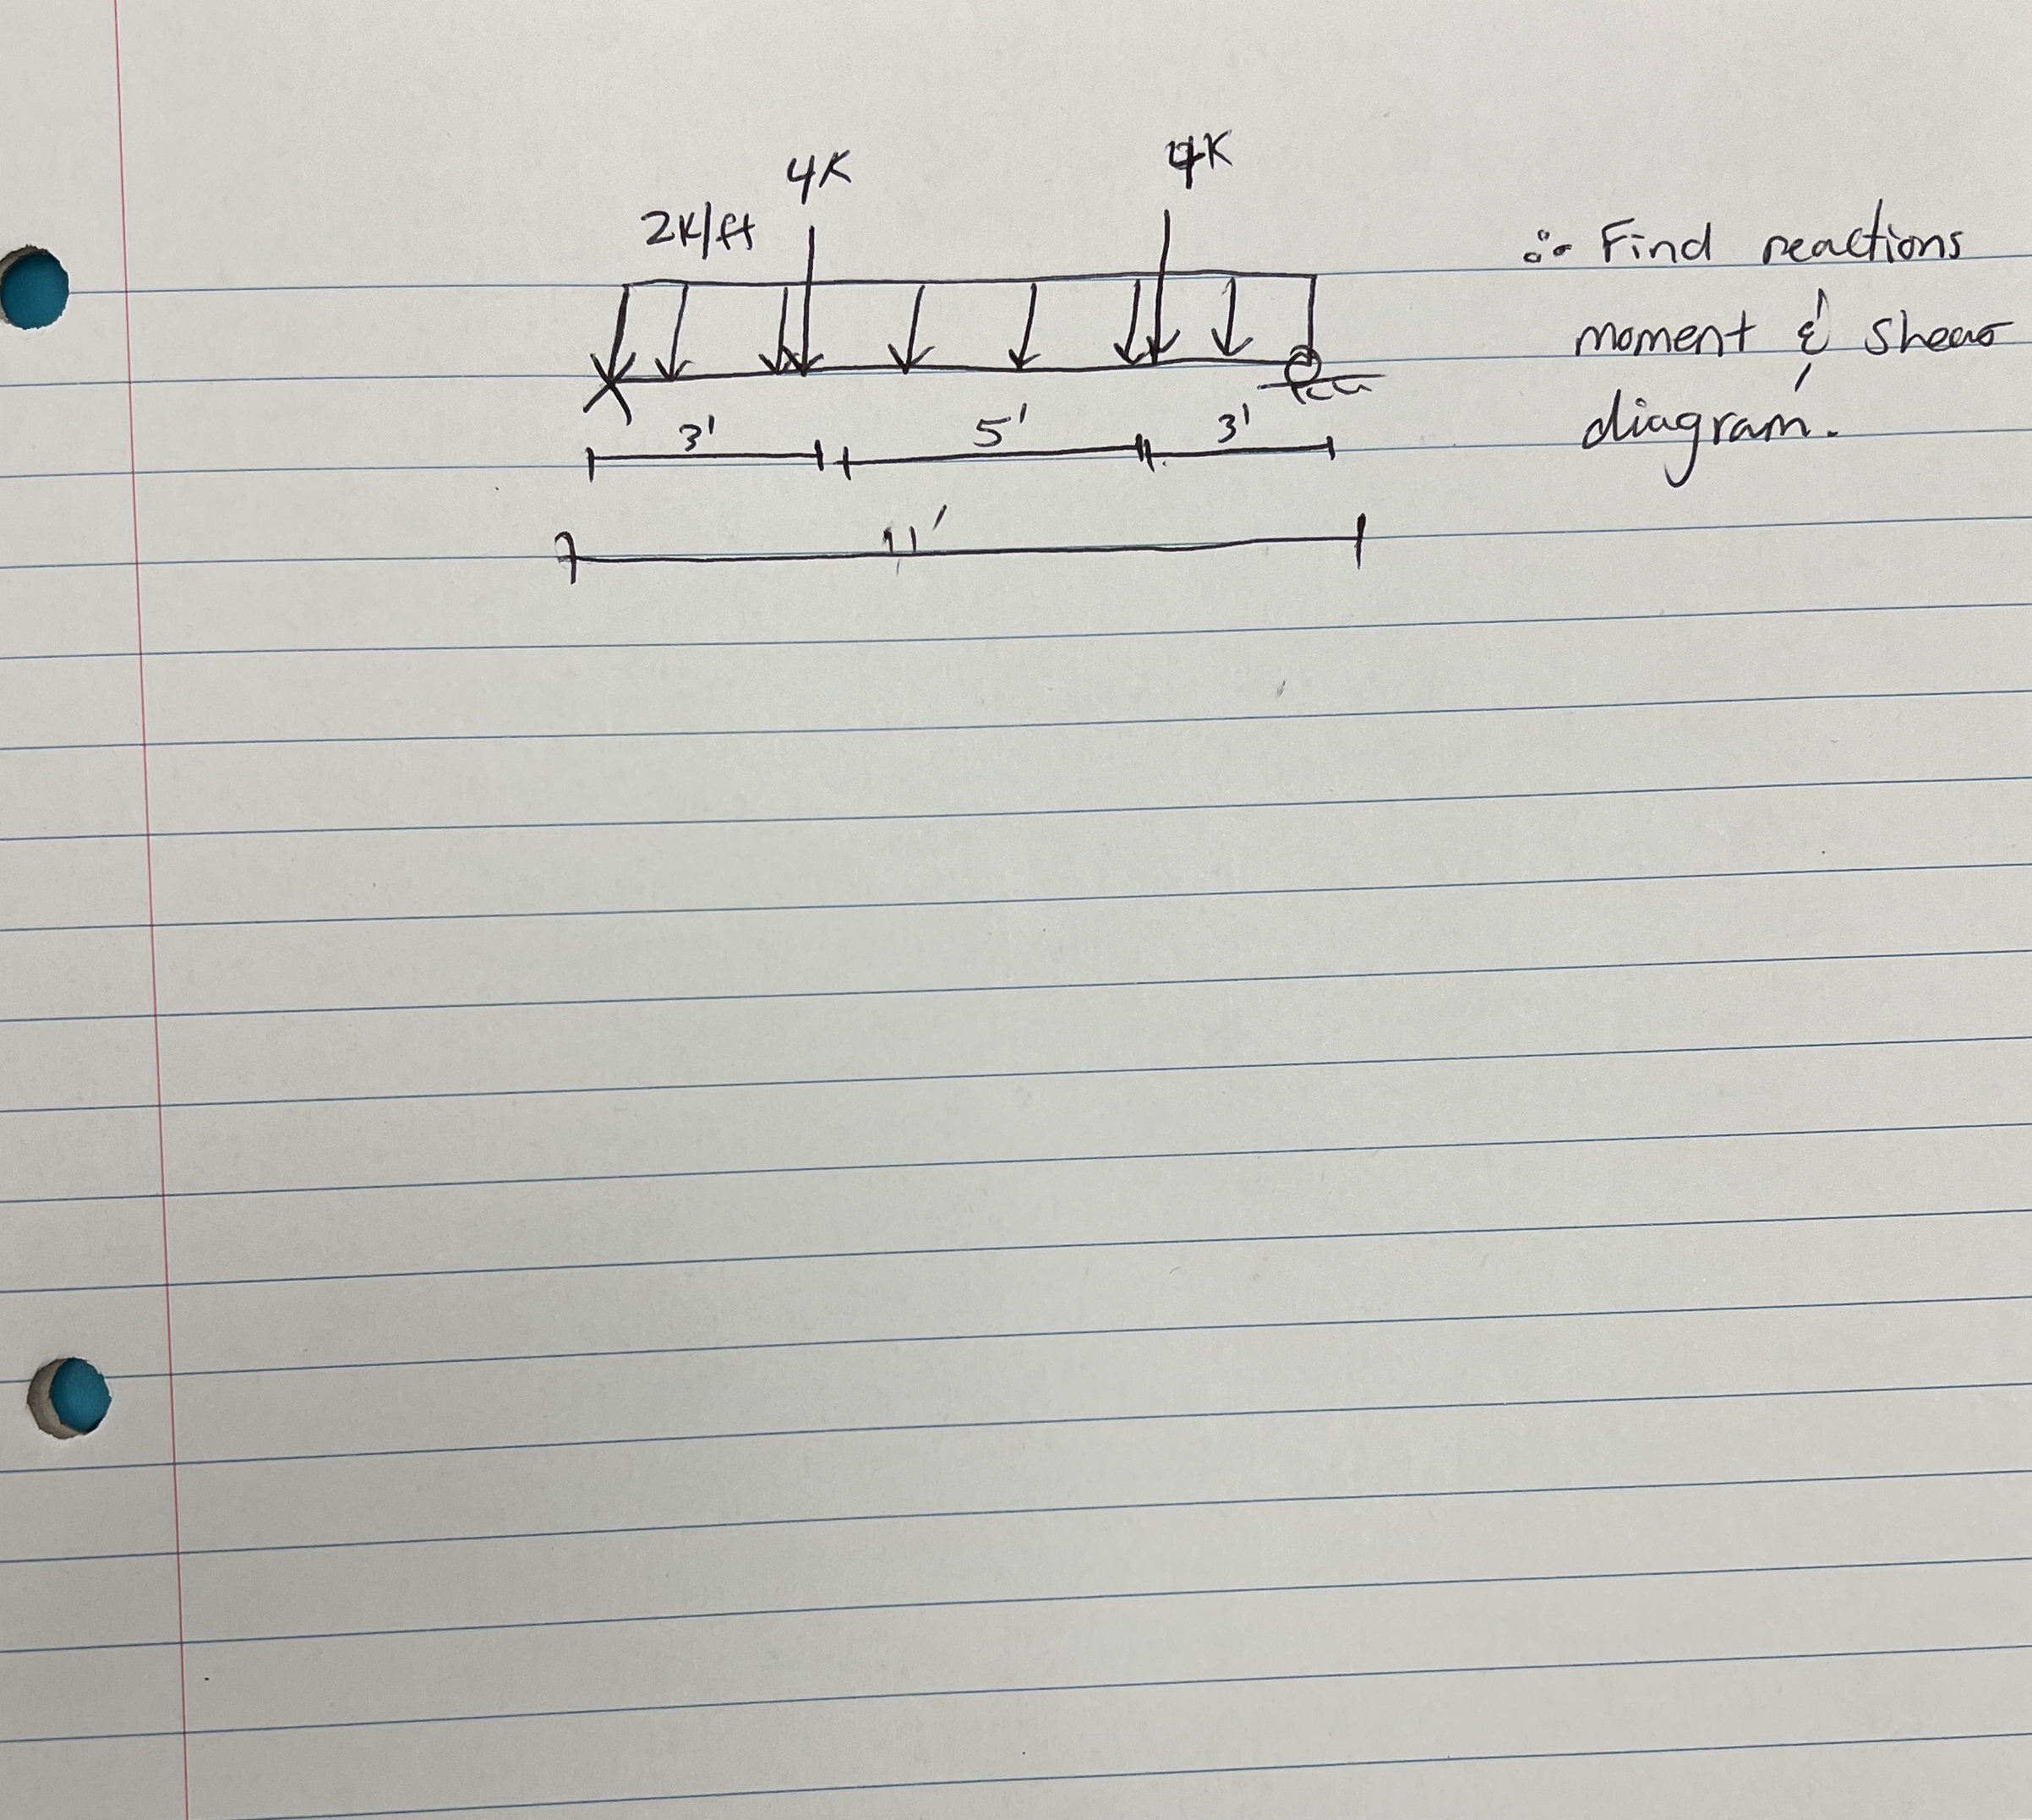 4K
4K
2K/ft
∴ Find reactions
moment & shear
diagram.
3'
5'
3'
11'